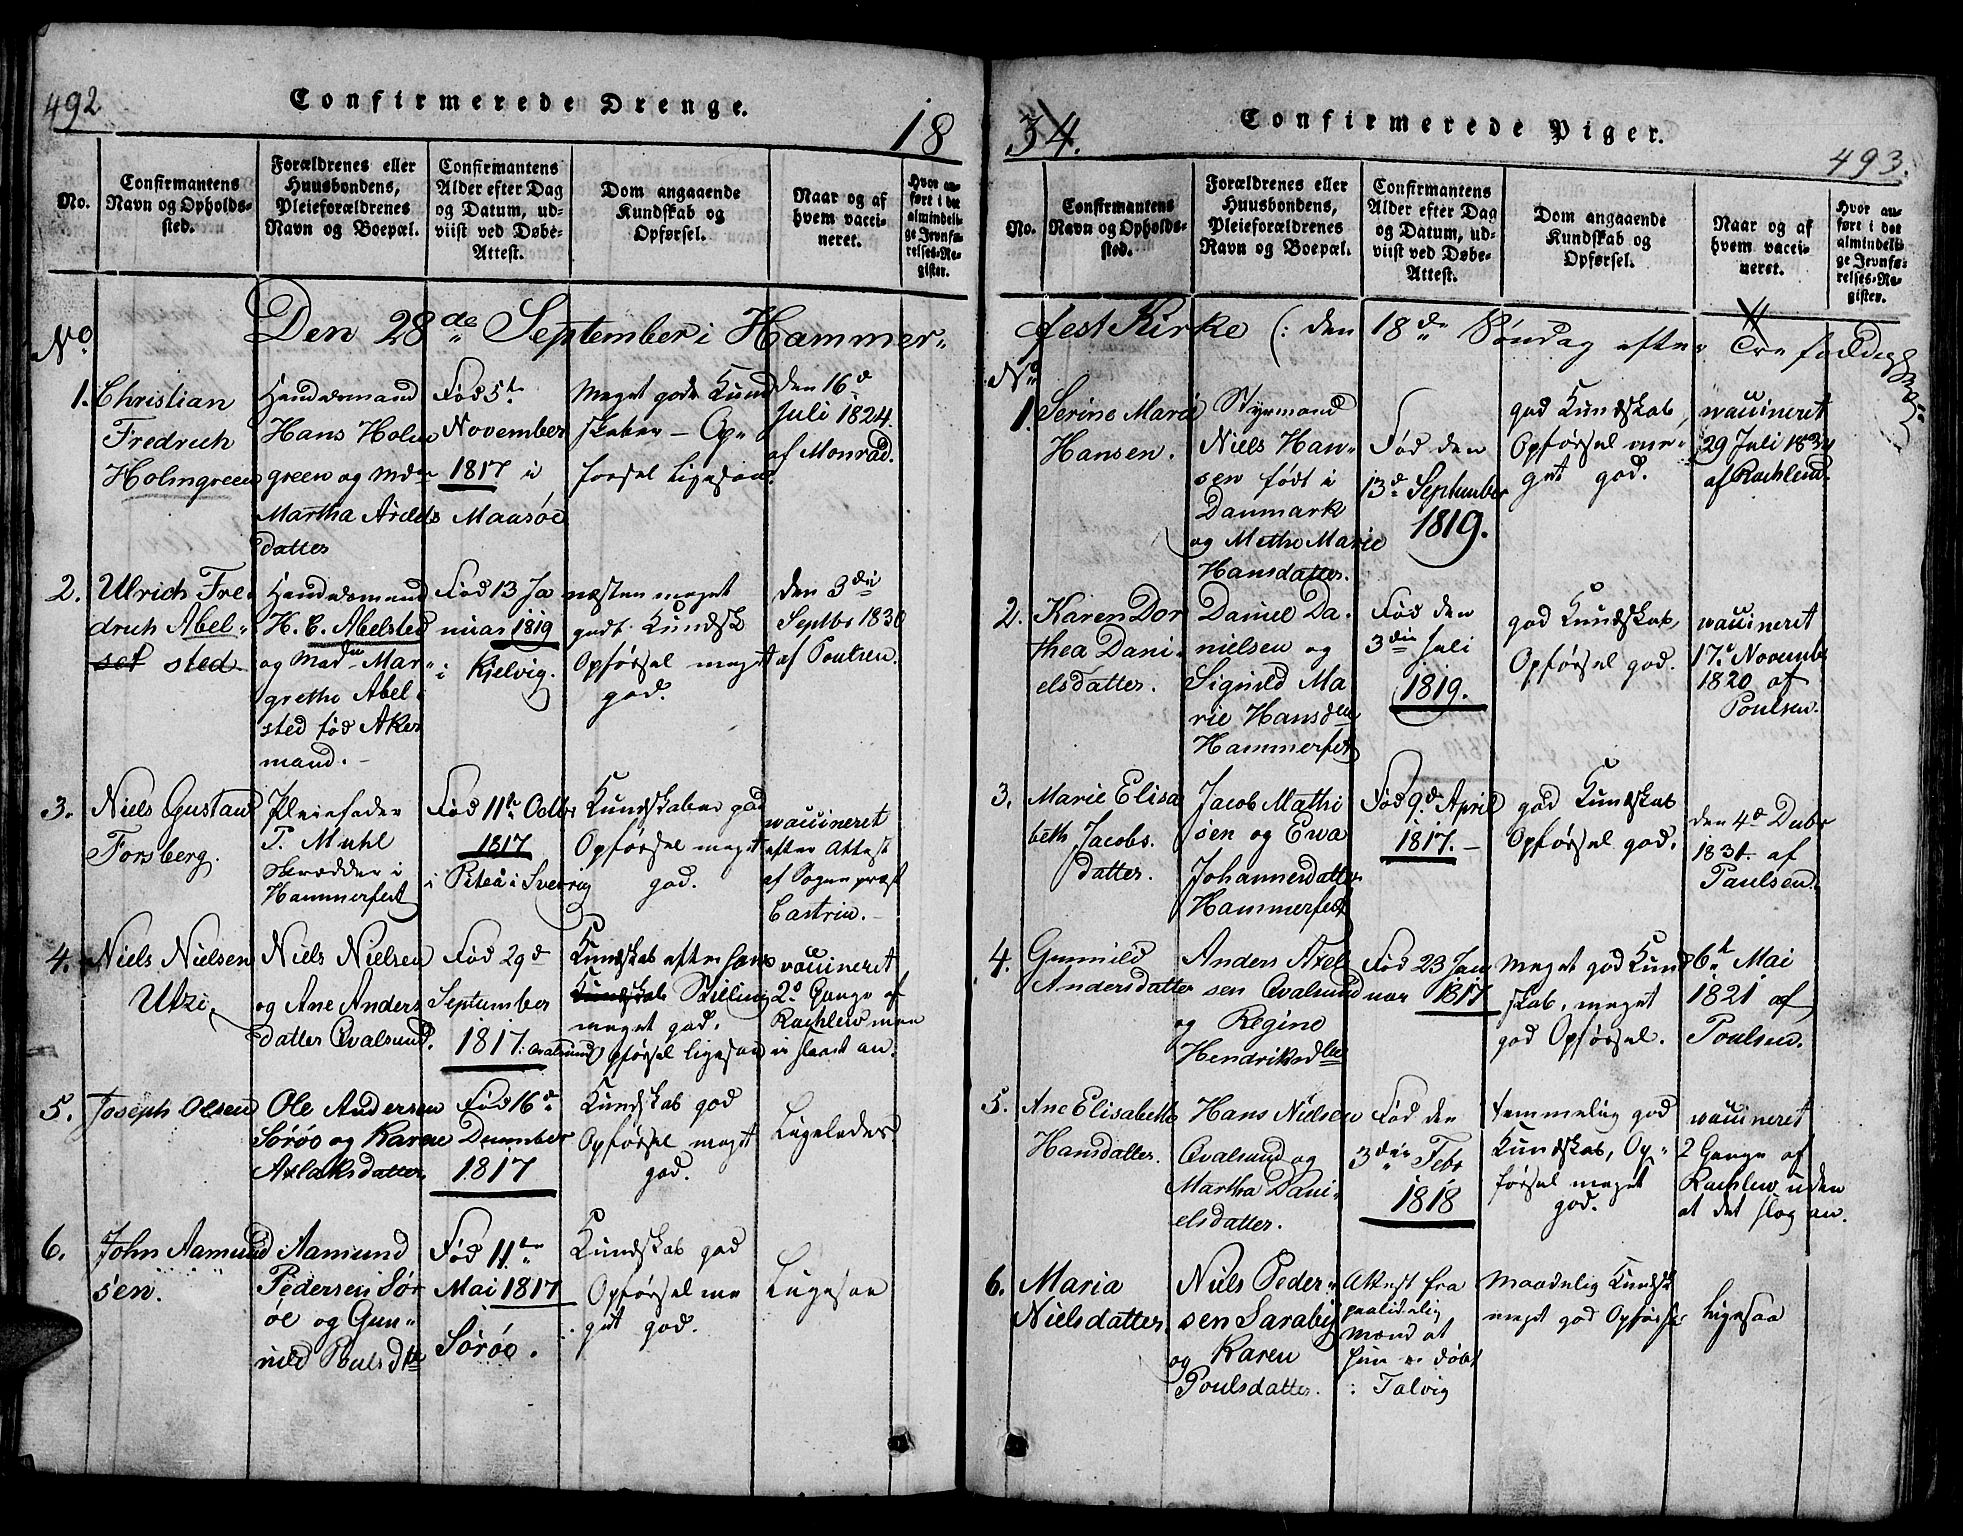 492
Confirmerede Drenge.
18
No.
Confirmantens
Navn og Opholds-
sted.
Forældrenes eller
Huusbondens,
Pleieforældrenes
Navn og Boepæl.
Confirmantens
Alder efter Dag
og Datum, ud-
viist ved Døbe-
Attest.
Dom angaaende
Kundskab og
Opførsel.
Naar og af
hvem vacci-
neret.
Hvor an-
ført i det
almindeli-
ge Jevnfø-
relses-Re-
gister.
Den 28de September i Hammer-
No
1. Christian
Fredrich
Holmgreen
Handelsmand
Hans Holm
green og Mdm
Martha Arilds
datter
Fød 5te
November
1817 i
Maasøe
Meget gode Kund
skaber - Op-
førsel ligesaa.
den 16de
Juli 1824
af Monrad.
2. Ulrich Fre-
drich Abel-
set sted
Handelsmand
H. C. Abelsted
og Mad Mar-
grethe Abel
sted fød Aker
mand. -
Fød 13 Ja
nuar 1819
i Kjelvig.
næsten meget
godt Kundsk
Opførsel meget
god.
den 3die
Septbr 1830
af Poulsen.
3. Niels Gustav
Forsberg.
Pleiefader
P. Muhl
Skrædder i
Hammerfest
Fød 11te Octbr
1817
i Piteå i Sverrig
Kundskaber god
Opførsel meget
god.
vaccineret
efter Attest
af Sognepræst
Castrin. -
4. Niels Nielsen
Utzi.
Niels Nielsen
og Ane Anders
datter Qvalsund.
Fød 29de
September
1817: Qvalsund
Kundskab efter hans
Kundskab Stilling
meget god.
Opførsel ligesaa
vaccineret
2de Gange af
Rachlew men
ei slaaet an.
5. Joseph Olsen
Ole Andersen
Sørøe og Karen
Axlaksdatter
Fød 16de
December
1817
Kundskab god
Opførsel meget
god.
Ligeledes
6. John Aamund
sen.
Aamund
Pedersen Sør
øe og Gun-
nild Poulsdtr
Fød 11te
Mai 1817
Sørøe.
Kundskab god
Opførsel me
get god.
Ligesaa
34.
Confirmerede Piger.
493.
No.
Confirmantens
Navn og Opholds-
sted.
Forældrenes eller
Huusbondens,
Pleieforældrenes
Navn og Boepæl.
Confirmantens
Alder efter Dag
og Datum, ud-
viist ved Døbe-
Attest.
Dom angaaende
Kundskab og
Opførsel.
Naar og af
hvem vacci-
neret.
Hvor an-
ført i det
almindeli-
ge Jevnfø-
relses-Re-
gister.
fest Kirke (: den 18de Søndag efter Trefoldigh
No
1. Serine Marie
Hansen.
Styrmand
Niels Han-
sen født i
Danmark
og Methe Marie
Hansdatter.
Fød den
13de September
1819.
god Kundskab,
Opførsel me-
get god.
vaccineret
29 Juli 1834
af Rachlew.
2. Karen Dor
thea Dani-
elsdatter.
Daniel Da-
nielsen og
Signild Ma
rie Hansdtr
Hammerfest
Fød den
3die Juli
1819.
god Kundskab,
Opførsel god.
vaccineret
17de Novembr
1820 af
Poulsen.
3. Marie Elisa
beth Jacobs.
datter.
Jacob Mathi
sen og Ewa
Johannesdatter
Hammerfest
Fød 9de April
1817. -
god Kundskab
Opførsel god.
den 4de Decbr
1831 af
Paulsen.
4. Gunnild
Andersdatter
Anders Axel
sen Qvalsund
og Regine
Hendriksdtr
Fød 23 Jan
uar 1817
Meget god Kund
skab, meget
god Opførsel.
6te Mai
1821 af
Poulsen.
5. Ane Elisabeth
Hansdatter.
Hans Nielsen
Qvalsund og
Martha Dani-
elsdatter.
Fød den
3die Febr
1818
temmelig god
Kundskab, Op-
førsel meget
god.
vaccineret
2 Gange af
Rachlew uden
at det slog an.
6. Maria
Nielsdatter
Niels Peder-
sen Saraby
og Karen
Poulsdatter.
Attest fra
paalidelig
Mænd at
hun er døbt
i Talvig
Maadelig Kundsk
meget god Opførsel
ligesaa